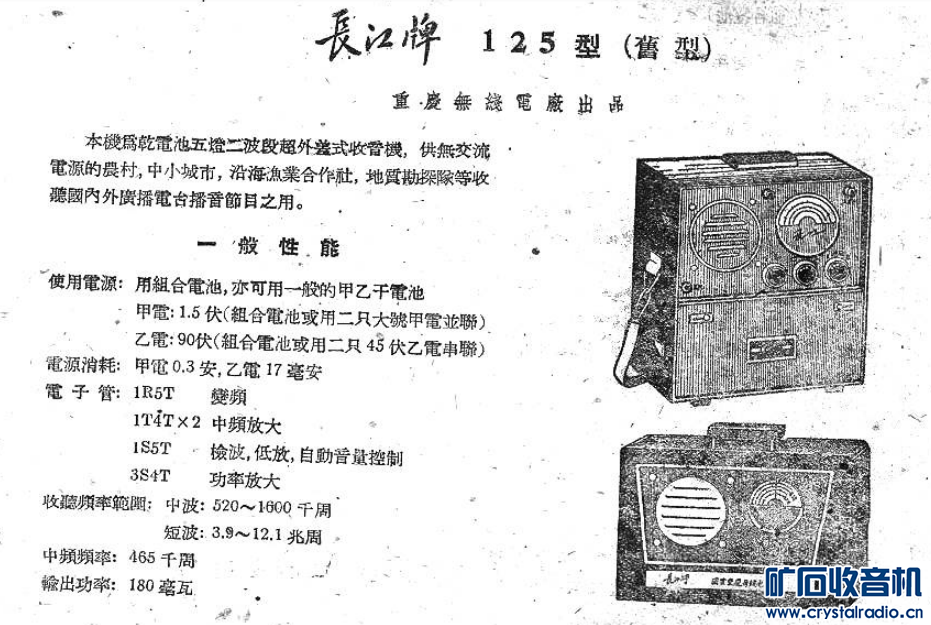 長江牌 125型(舊型)
重慶無綫電廠出品
本機爲乾電池五燈二波段超外差式收音機，供無交流
電源的農村，中小城市，沿海漁業合作社，地質勘探隊等收
聽國內外廣播電台播音節目之用。
一般性能
使用電源：用組合電池，亦可用一般的甲乙干電池
甲電：1.5伏(組合電池或用二只大號甲電並聯)
乙電：90伏(組合電池或用二只45伏乙電串聯)
電源消耗：甲電0.3安，乙電17毫安
電子管：1R5T 變頻
1T4T×2 中頻放大
1S5T 檢波，低放，自動音量控制
3S4T 功率放大
收聽頻率範圍：中波：520～1600千周
短波：3.9～12.1兆周
中頻頻率：465千周
輸出功率：180毫瓦
長江牌
矿石收音机
www.crystalradio.cn